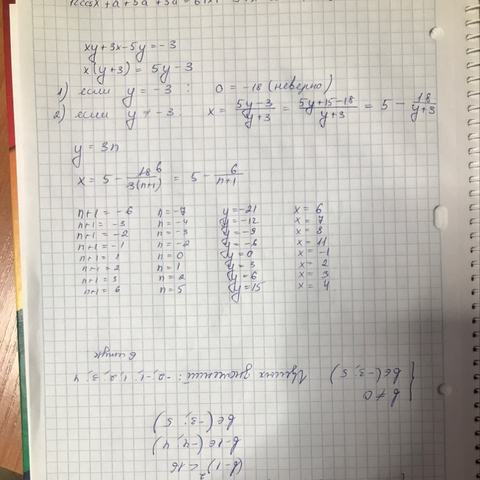 xy+3x-5y=-3
x(y+3) = 5y-3
1) если y = -3 : 0 = -18 (неверно)
2) если y ≠ -3. x = \frac{5y-3}{y+3} = \frac{5y+15-18}{y+3} = 5 - \frac{18}{y+3}
y = 3n
x = 5 - \frac{18 6}{3(n+1)} = 5 - \frac{6}{n+1}
n+1 = -6 n = -7 y = -21 x = 6
n+1 = -3 n = -4 y = -12 x = 7
n+1 = -2 n = -3 y = -9 x = 8
n+1 = -1 n = -2 y = -6 x = 11
n+1 = 1 n = 0 y = 0 x = -1
n+1 = 2 n = 1 y = 3 x = 2
n+1 = 3 n = 2 y = 6 x = 3
n+1 = 6 n = 5 y = 15 x = 4
(b-1)² < 16
b-1 ∈ (-4; 4)
b ∈ (-3; 5)
b ≠ 0
b ∈ (-3; 5) значений: -2, -1, 1, 2, 3, 4
6 штук